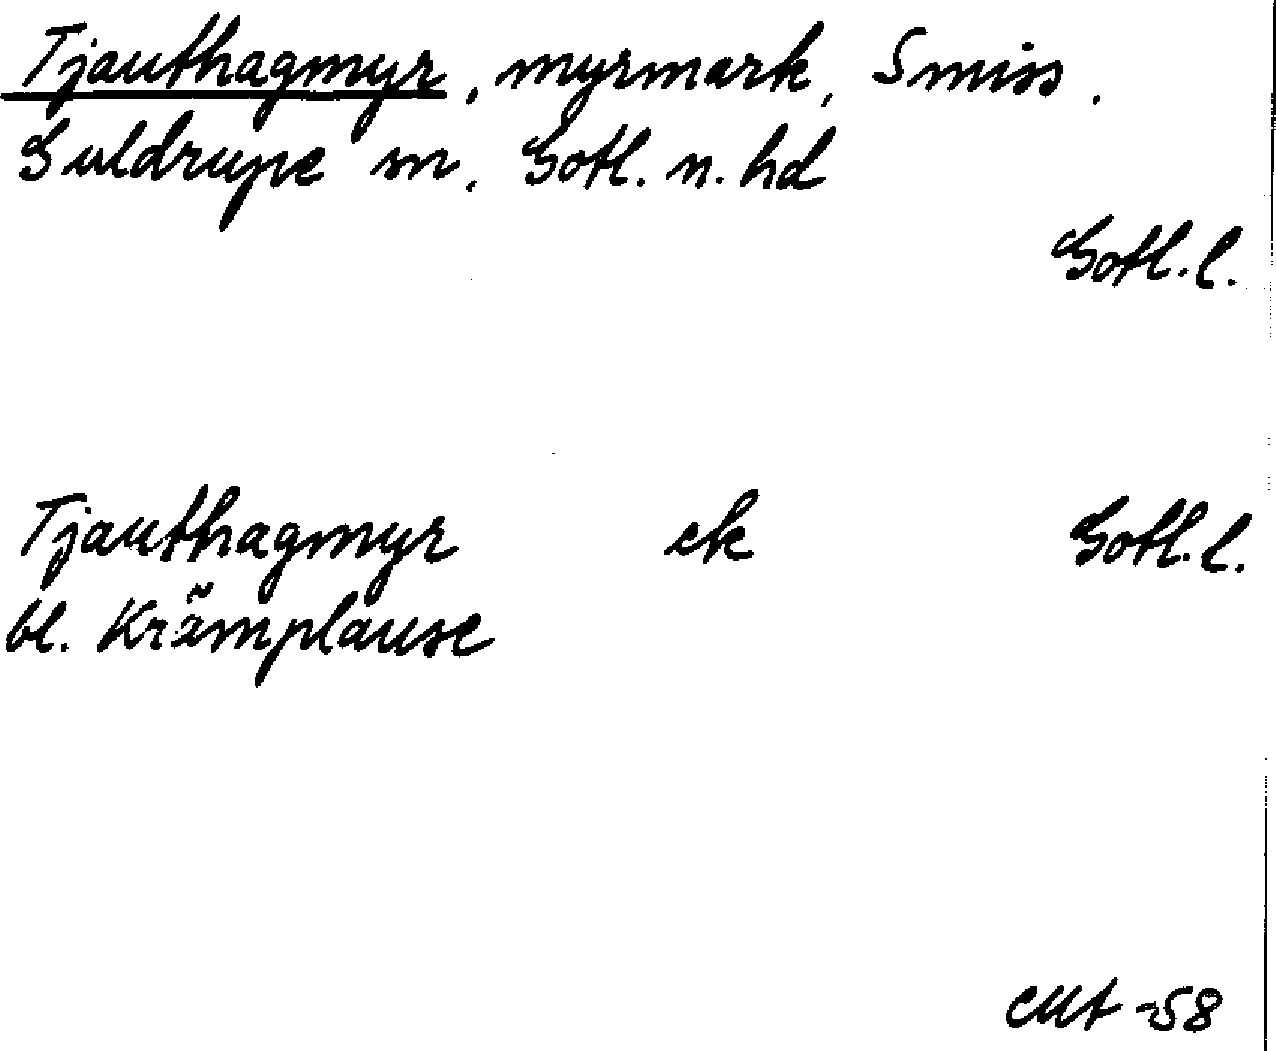 Tjauthagmyr, myrmark, Smiss.
Guldrupe sn, Gotl. n. hd
Gotl. l.
Tjauthagmyr ek Gotl. l.
bl. Krämplause
CMt -58